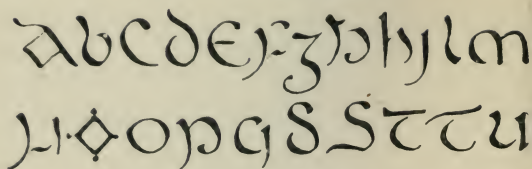 abcdefghhjlm
noopqssttu